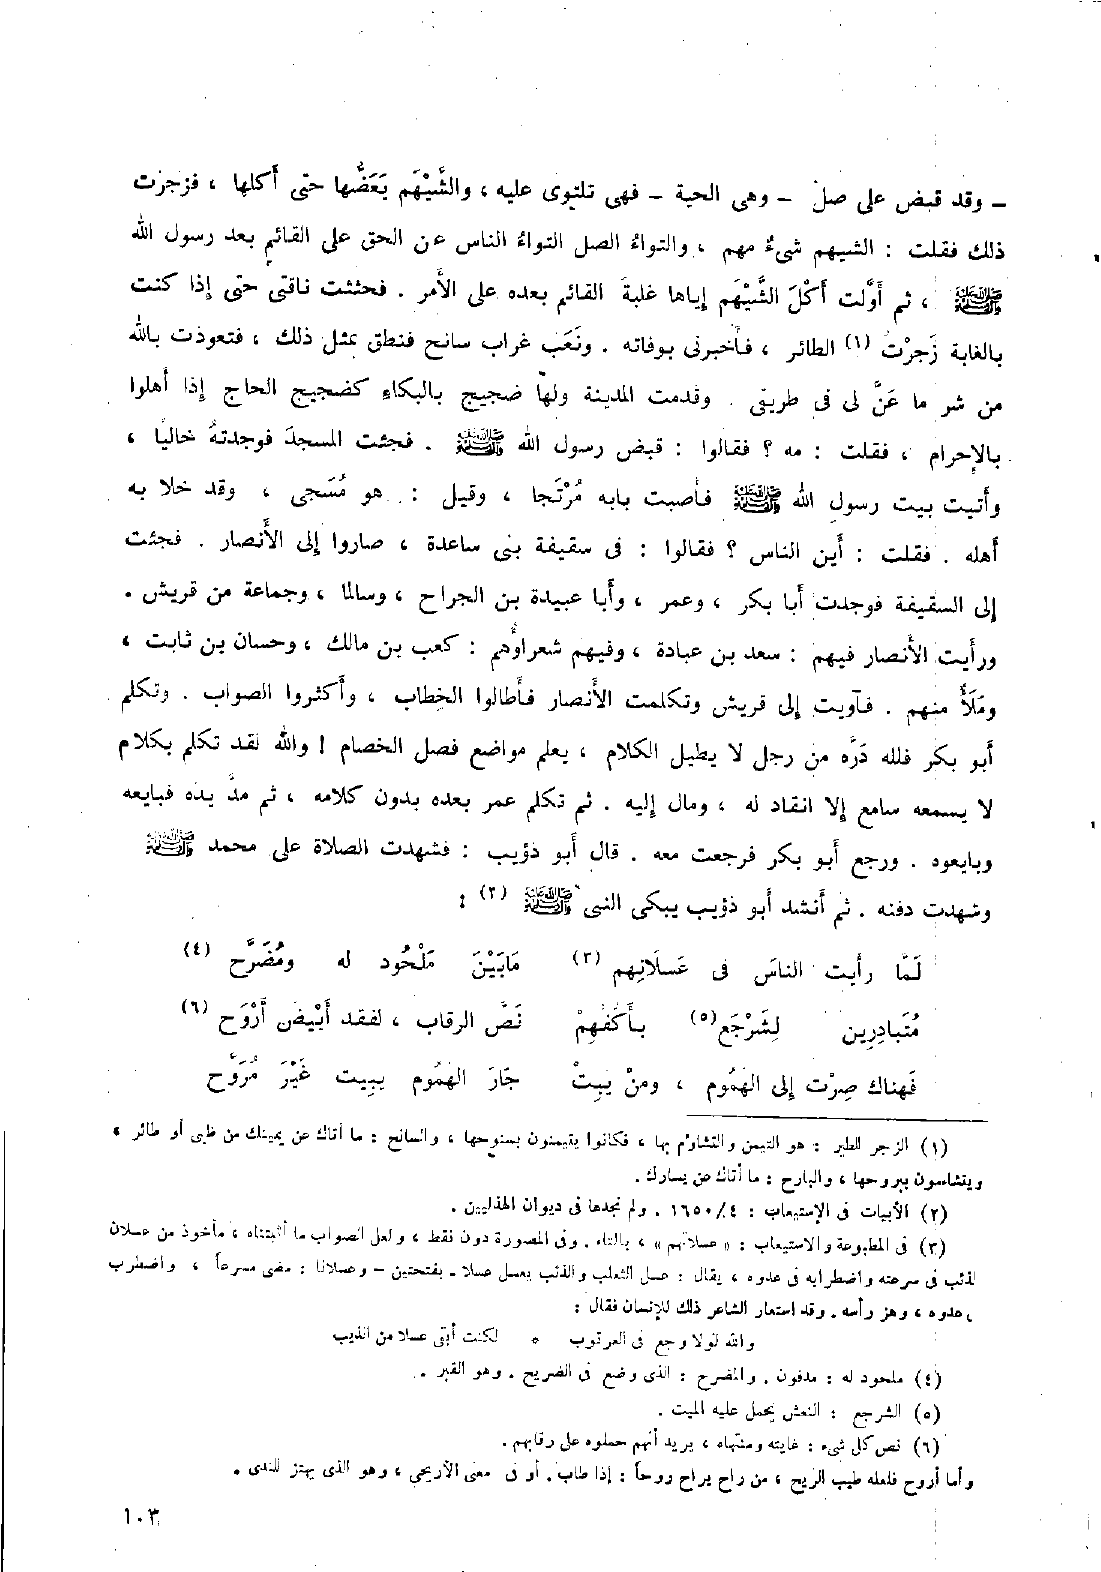 - وقد قبض على صل - وهى الحية - فهى تلتوى عليه ، والشَّيْهَم يَعَضُّها حتى أكلها ، فزجزت
ذلك فقلت : الشيهم شىءٌ مهم ، والتواءُ الصل التواءُ الناس عن الحق على القائم بعد رسول الله
ﷺ ، ثم أَوَّلت أَكْلَ الشَّيْهَم إياها غلبةَ القائم بعده على الأمر . فحثثت ناقتى حتى إذا كنت
بالغابة زَجرْتُ (١) الطائر ، فأخبرنى بوفاته . ونَعَب غراب سانح فنطق بمثل ذلك ، فتعوذت بالله
من شر ما عَنَّ لى فى طريقى . وقدمت المدينة ولها ضجيج بالبكاءِ كضجيج الحاج إذا أهلوا
بالإحرام ، فقلت : مه ؟ فقالوا : قبض رسول الله ﷺ . فجئت المسجدَ فوجدتهُ خاليًا ،
وأتيت بيت رسول الله ﷺ فأصبت بابه مُرْتَجا ، وقيل : هو مُسَجى ، وقد خلا به
أهله . فقلت : أين الناس ؟ فقالوا : فى سقيفة بنى ساعدة ، صاروا إلى الأنصار . فجئت
إلى السقيفة فوجدت أبا بكر ، وعمر ، وأبا عبيدة بن الجراح ، وسالما ، وجماعة من قريش .
ورأيت الأنصار فيهم : سعد بن عبادة ، وفيهم شعراؤهم : كعب بن مالك ، وحسان بن ثابت ،
ومَلَأٌ منهم . فآويت إلى قريش وتكلمت الأنصار فأطالوا الخطاب ، وأكثروا الصواب . وتكلم
أبو بكر فلله دَرُّه من رجل لا يطيل الكلام ، يعلم مواضع فصل الخصام ! والله لقد تكلم بكلام
لا يسمعه سامع إلا انقاد له ، ومال إليه . ثم تكلم عمر بعده بدون كلامه ، ثم مدَّ يده فبايعه
وبايعوه . ورجع أبو بكر فرجعت معه . قال أبو ذؤيب : فشهدت الصلاة على محمد ﷺ
وشهدت دفنه . ثم أنشد أبو ذؤيب يبكى النبى ﷺ (٢) :
لَمَّا رأيت الناسَ فى عَسلَانِهم (٣) مَابَيْنَ مَلْحُود له ومُضَرَّح (٤)
مُتَبادِرِين لِشَرْجَع (٥) بأَكُفِهِمْ نَصَّ الرقاب ، لفقد أبْيضَ أرْوَح (٦)
فَهناك صِرْت إلى الهمُوم ، ومنْ يبِتْ جَارَ الهمُوم يبيت غَيْرَ مُرَوَّح
(١) الزجر للطير : هو التيمن والتشاؤم بها ، فكانوا يتيمنون بسنوحها ، والسانح : ما أتاك عن يمينك من ظبى أو طائر ،
ويتشاسون ببروحها ، والبارح : ما أتاك من يسارك .
(٢) الأبيات فى الإستيعاب : ٤/ ١٦٥٠ . ولم نجدها فى ديوان الهذليين .
(٣) فى المطبوعة والاستيعاب : « عسلاتهم » ، بالتاء . وفى المصورة دون نقط ، ولعل الصواب ما أثبتناه ، مأخوذ من عسلان
لذئب فى سرعته واضطرابه فى عدوه ، يقال : عسل الثعلب والذئب يعسل عسلا - بفتحتين - وعسلانا : مضى مسرعاً ، واضطرب
، عدوه ، وهز رأسه . وقد استعار الشاعر ذلك للإنسان فقال :
والله لولا وجع فى العرقوب ٠ لكنت أبقى عسلا من الذيب
(٤) ملحود له : مدفون . والمضرح : الذى وضع فى الضريح . وهو القبر .
(٥) الشرجع : النعش يحمل عليه الميت .
(٦) نص كل شىء : غايته ومنتهاه ، يريد أنهم حملوه على رقابهم .
وأما أروح فلعله طيب الريح ، من راح يراح روحاً : إذا طاب . أو فى معنى الأريحى ، وهو الذى يهتز للندى .
١٠٣